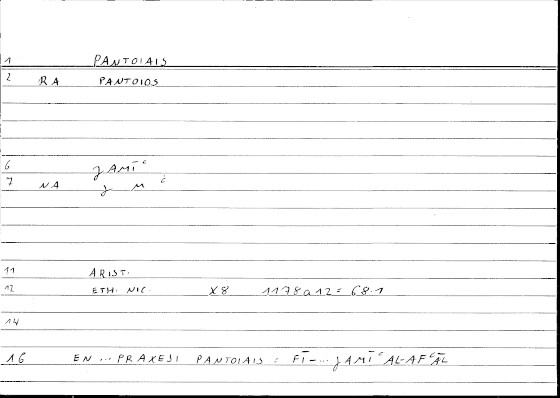 1 PANTOIAIS
2 RA PANTOIOS
6 ǧAMĪʿ
7 NA ǧ M ʿ
11 ARIST.
12 ETH. NIC. X8 1178a12 = 68.1
14
16 EN ... PRAXESI PANTOIAIS : FĪ-... ǧAMĪʿ AL-AFʿĀL